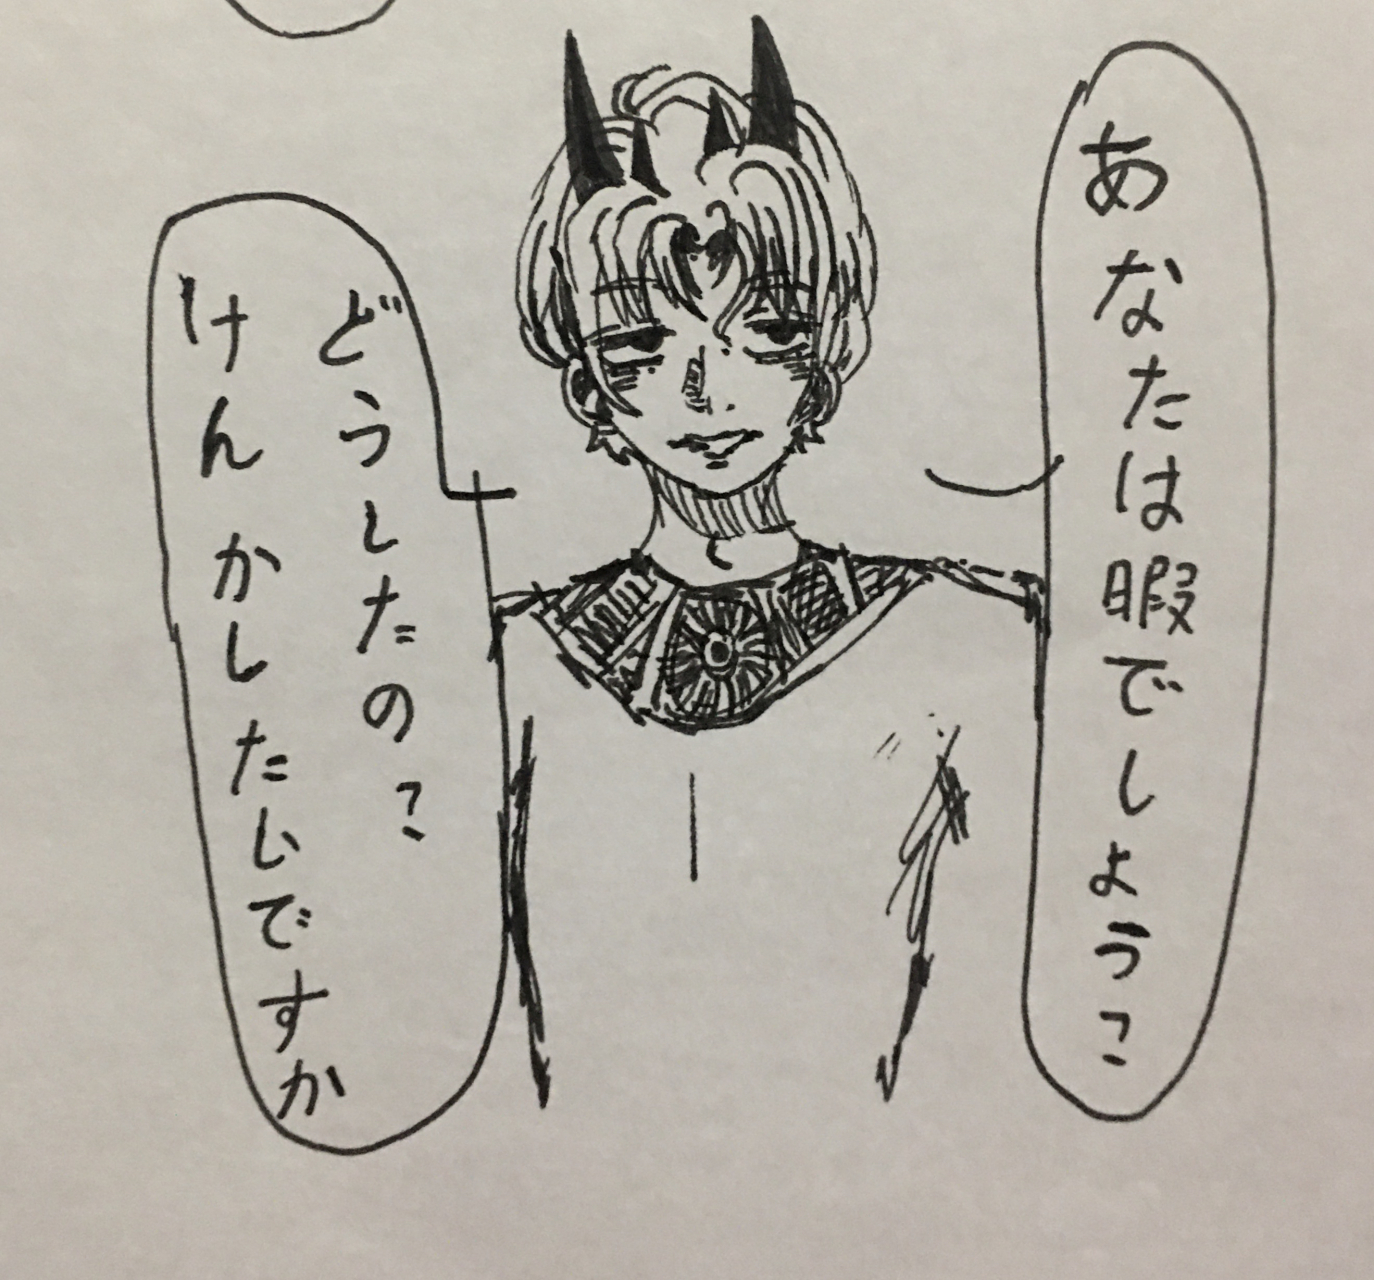 あなたは暇でしょう?
どうしたの?
けんかしたいですか